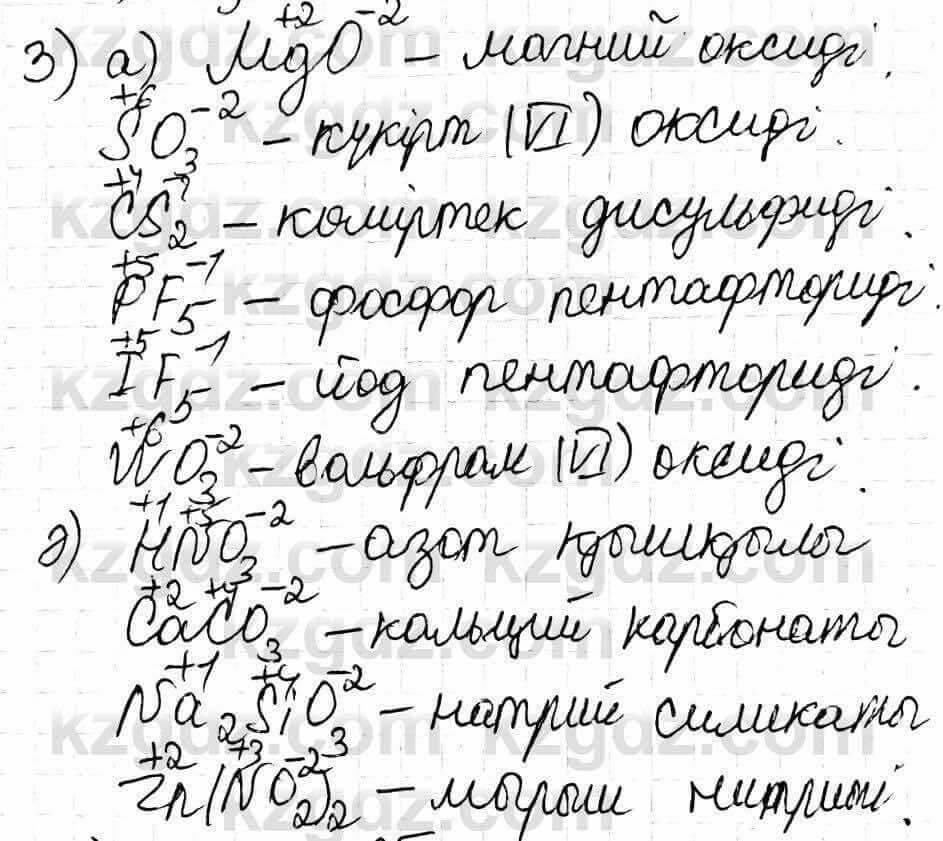 3) а) Mg⁺²O⁻² – магний оксиді.
S⁺⁶O₃⁻² – күкірт (VI) оксиді.
C⁺⁴S₂⁻² – көміртек дисульфиді.
P⁺⁵F₅⁻¹ – фосфор пентафториді.
I⁺⁵F₅⁻¹ – йод пентафториді.
W⁺⁶O₃⁻² – вольфрам (VI) оксиді.
ә) H⁺¹N⁺⁵O₃⁻² – азот қышқылы
Ca⁺²C⁺⁴O₃⁻² – кальций карбонаты
Na₂⁺¹Si⁺⁴O₃⁻² – натрий силикаты
Zn⁺²(N⁺³O₂⁻²)₂ – мырыш нитриті.